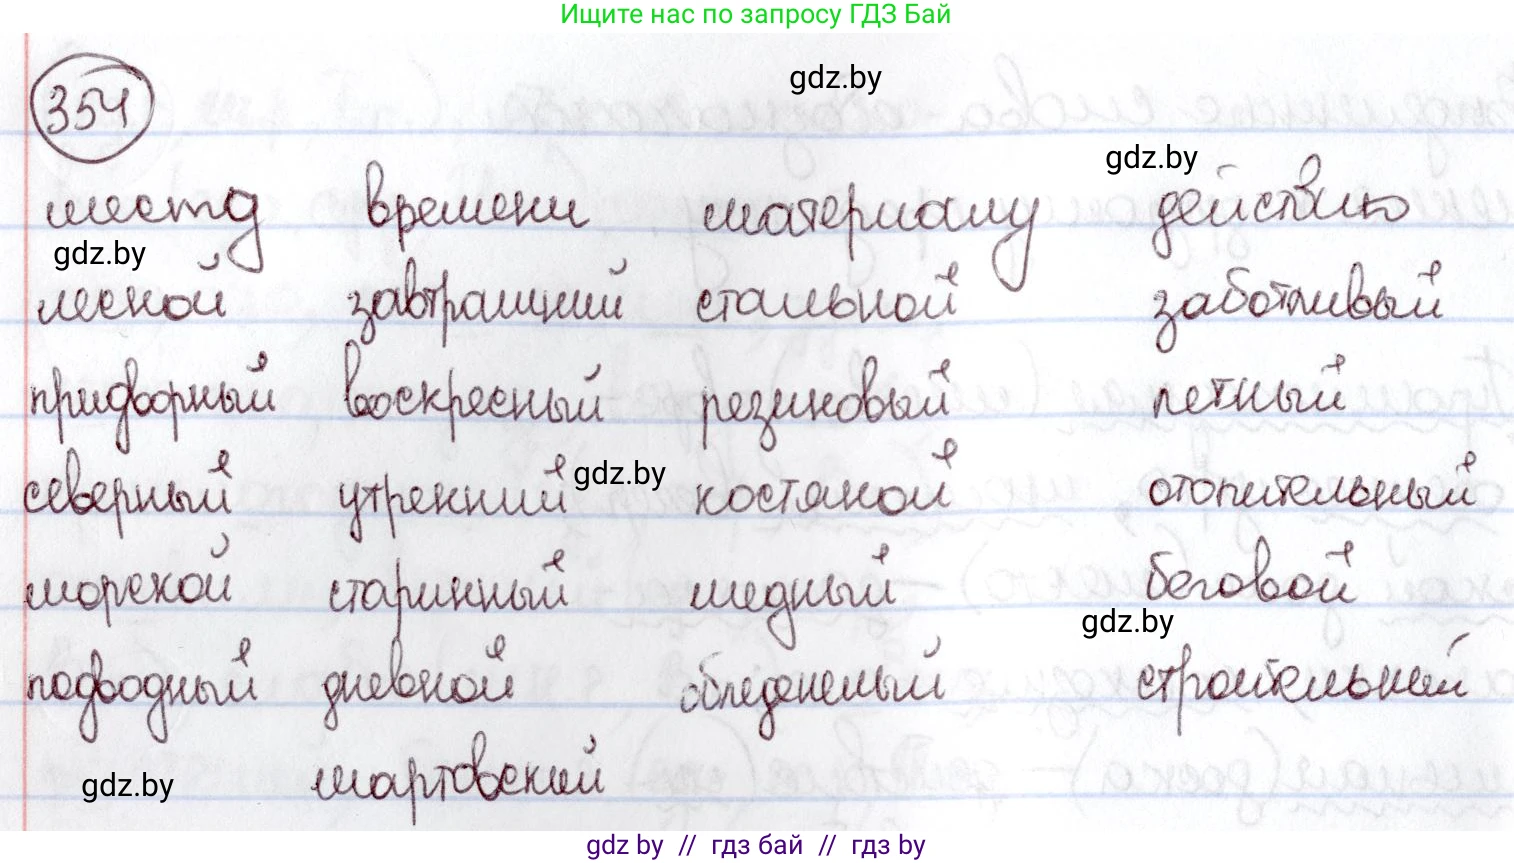 Ищите нас по запросу ГДЗ Бай
gdz.by
354
gdz.by
месту времени материалу действию
gdz.by
лесной завтрашний стальной заботливый
придворный воскресный резиновый летный
северный утренний gdz.by костяной отопительный
морской старинный медный беговой
gdz.by
подводный дневной обледенелый строительный
gdz.by мартовский
gdz.by // гдз бай // гдз by